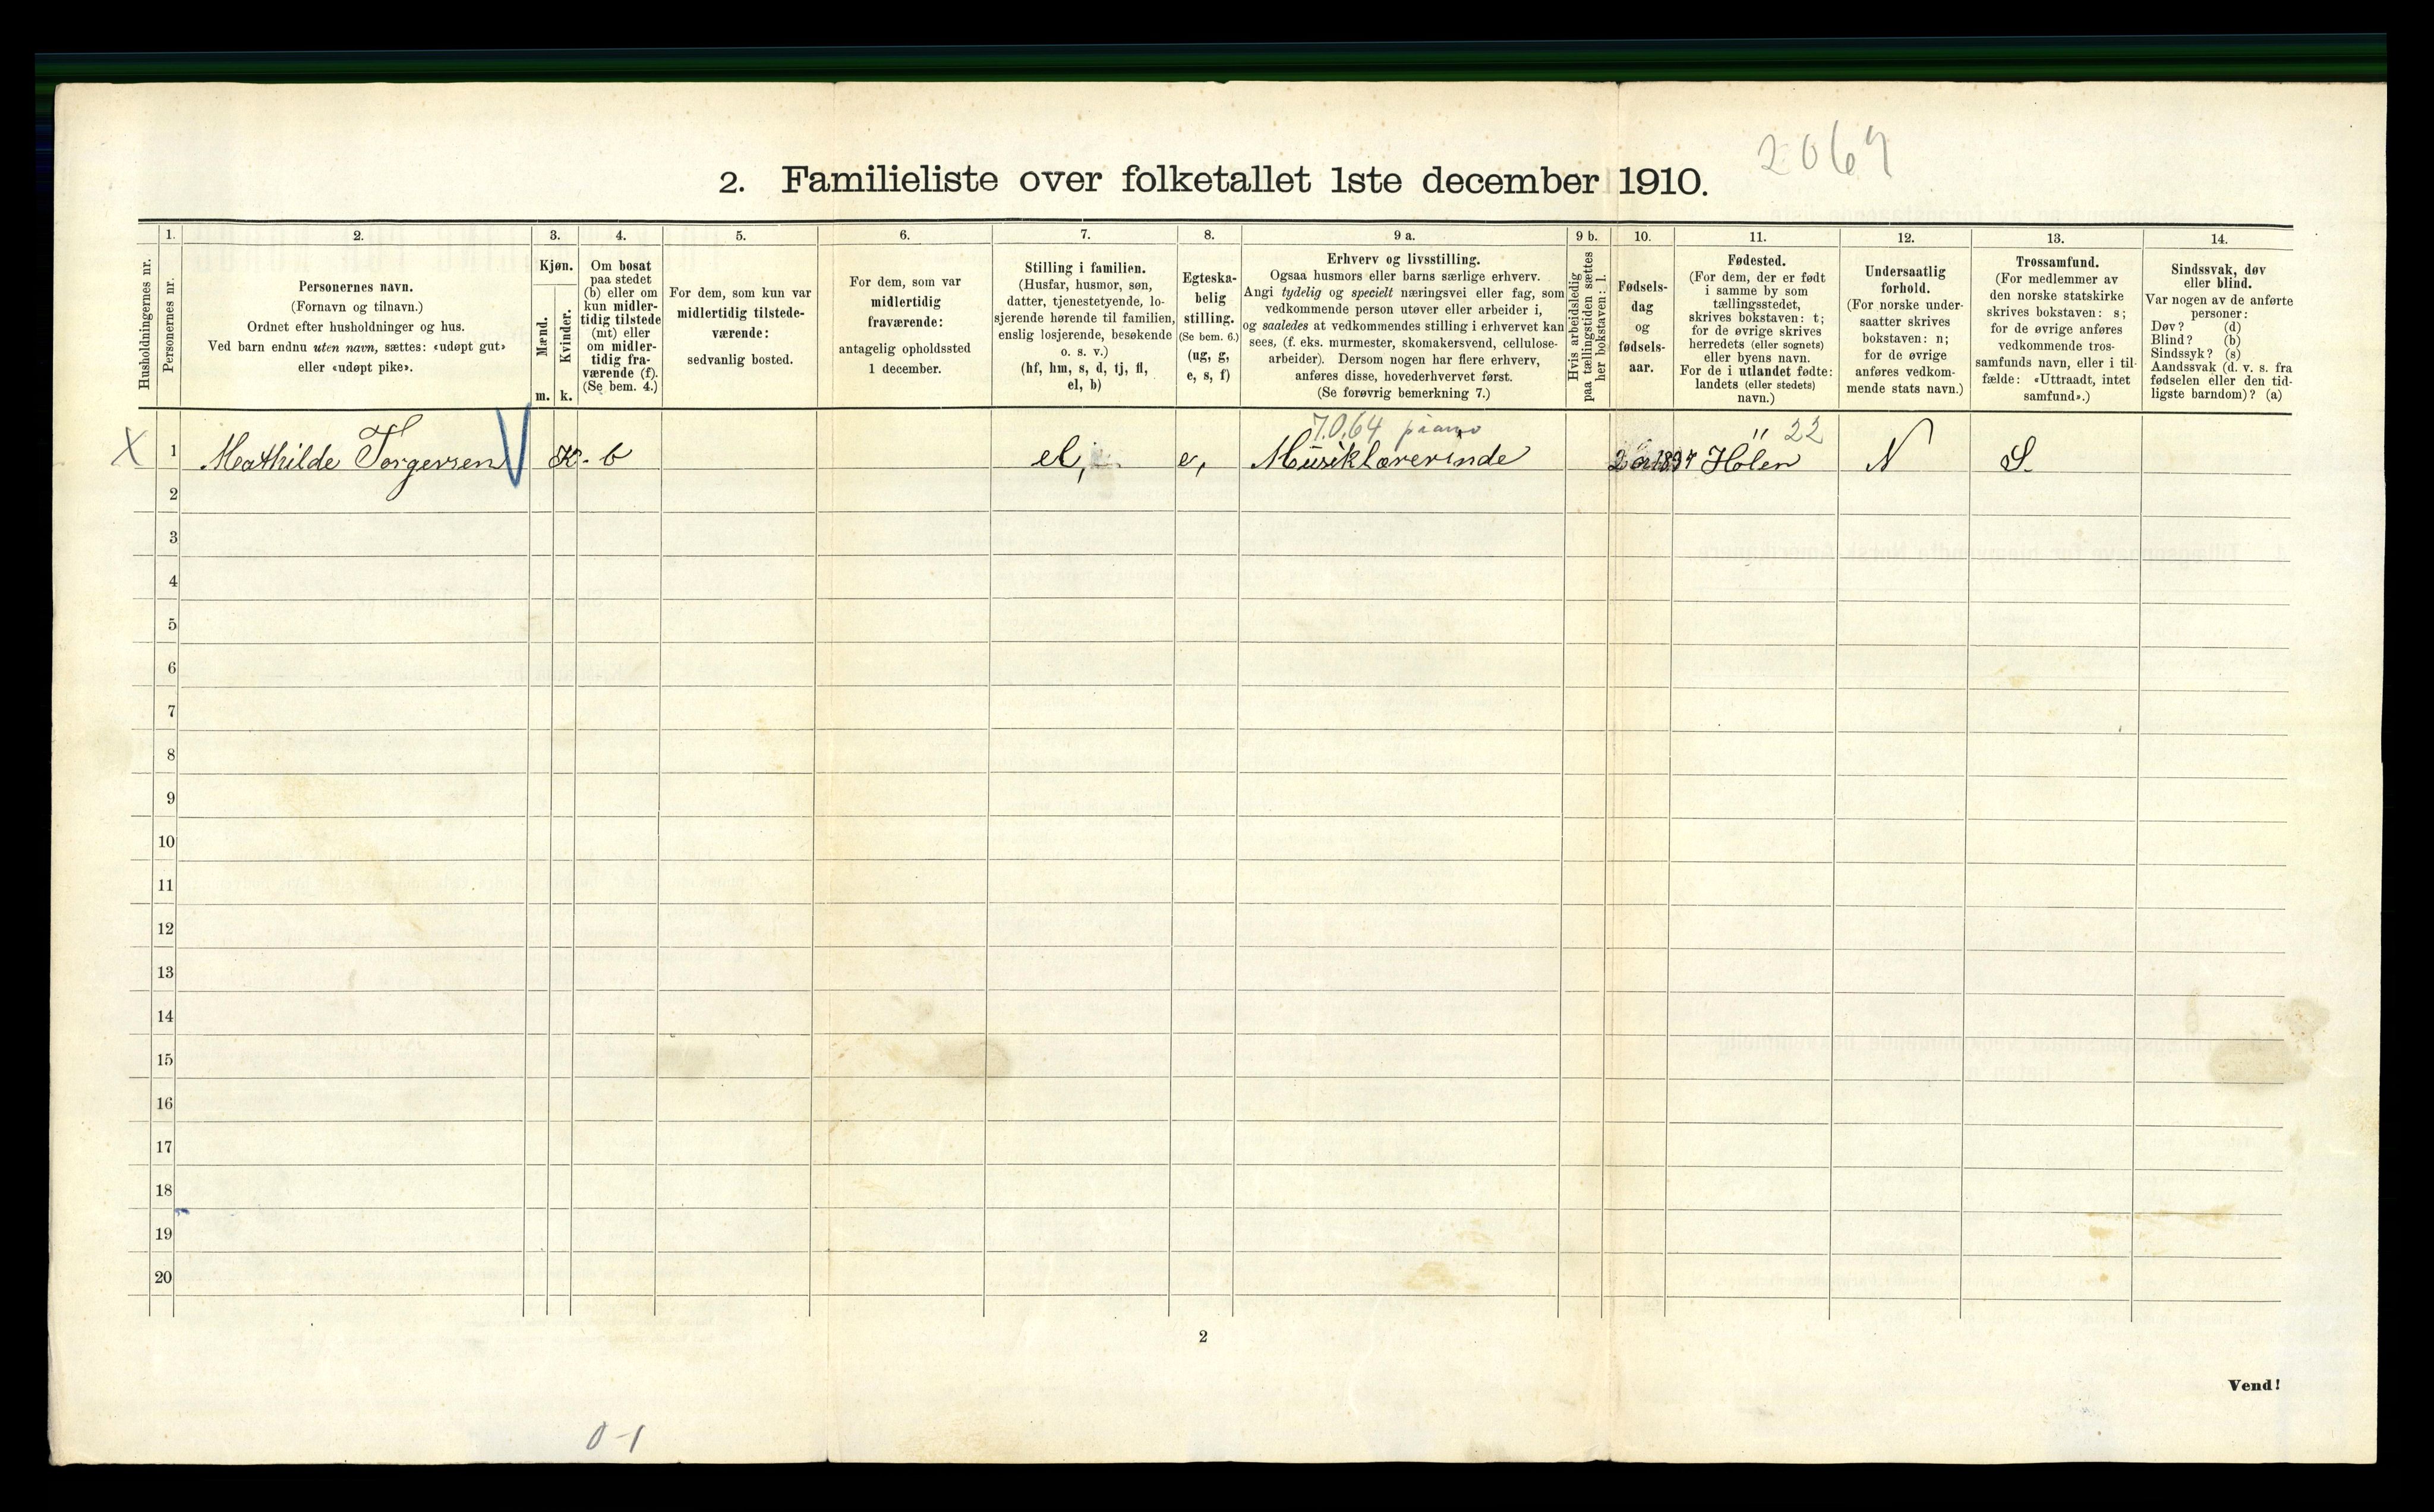 2069
2. Familieliste over folketallet 1ste december 1910.
1. 2. 3. 4. 5. 6. 7. 8. 9 a. 9 b. 10. 11. 12. 13. 14.
Husholdningernes nr.
Personernes nr.
Personernes navn.
(Fornavn og tilnavn.)
Ordnet efter husholdninger og hus.
Ved barn endnu uten navn, sættes: «udøpt gut»
eller «udøpt pike».
Kjøn.
Mænd.
Kvinder.
m. k.
Om bosat
paa stedet
(b) eller om
kun midler-
tidig tilstede
(mt) eller
om midler-
tidig fra-
værende (f).
(Se bem. 4.)
For dem, som kun var
midlertidig tilstede-
værende:
sedvanlig bosted.
For dem, som var
midlertidig
fraværende:
antagelig opholdssted
1 december.
Stilling i familien.
(Husfar, husmor, søn,
datter, tjenestetyende, lo-
sjerende hørende til familien,
enslig losjerende, besøkende
o. s. v.)
(hf, hm, s, d, tj, fl,
el, b)
Egteska-
belig
stilling.
(Se bem. 6.)
(ug, g,
e, s, f)
Erhverv og livsstilling.
Ogsaa husmors eller barns særlige erhverv.
Angi tydelig og specielt næringsvei eller fag, som
vedkommende person utøver eller arbeider i,
og saaledes at vedkommendes stilling i erhvervet kan
sees, (f. eks. murmester, skomakersvend, cellulose-
arbeider). Dersom nogen har flere erhverv,
anføres disse, hovederhvervet først.
(Se forøvrig bemerkning 7.)
Hvis arbeidsledig
paa tællingstiden sættes
her bokstaven: l.
Fødsels-
dag
og
fødsels-
aar.
Fødested.
(For dem, der er født
i samme by som
tællingsstedet,
skrives bokstaven: t;
for de øvrige skrives
herredets (eller sognets)
eller byens navn.
For de i utlandet fødte:
landets (eller stedets)
navn.)
Undersaatlig
forhold.
(For norske under-
saatter skrives
bokstaven: n;
for de øvrige
anføres vedkom-
mende stats navn.)
Trossamfund.
(For medlemmer av
den norske statskirke
skrives bokstaven: s;
for de øvrige anføres
vedkommende tros-
samfunds navn, eller i til-
fælde: «Uttraadt, intet
samfund».)
Sindssvak, døv
eller blind.
Var nogen av de anførte
personer:
Døv? (d)
Blind? (b)
Sindssyk? (s)
Aandssvak (d. v. s. fra
fødselen eller den tid-
ligste barndom)? (a)
7.0.64 piano
22
X 1 Mathilde Torgersen K. b el, e, Musiklærerinde Hølen N S.
2
3
4
5
6
7
8
9
10
11
12
13
14
15
16
17
18
19
20
2
Vend!
0-1